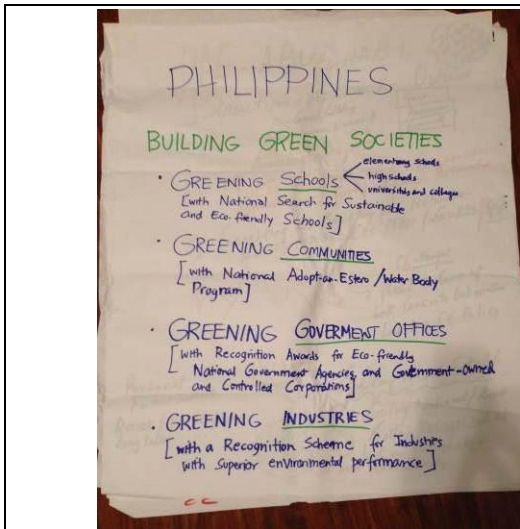 PHILIPPINES
BUILDING GREEN SOCIETIES
• GREENING Schools
elementary schools
high schools
universities and colleges
[with National Search for Sustainable
and Eco-friendly Schools]
• GREENING COMMUNITIES
[with National Adopt-an-Estero/Water Body
Program]
• GREENING GOVERMENT OFFICES
[with Recognition Awards for Eco-friendly
National Government Agencies, and Government-owned
and Controlled Corporations]
• GREENING INDUSTRIES
[with a Recognition Scheme for Industries
with superior environmental performance]